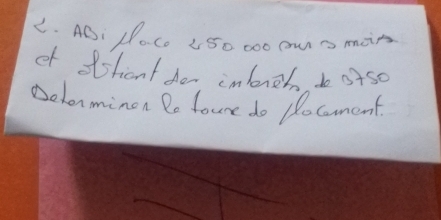 2. ABi place 250 000 sur 3 mois
et obtient des intérêts de 3750
Déterminer le taux de placement.